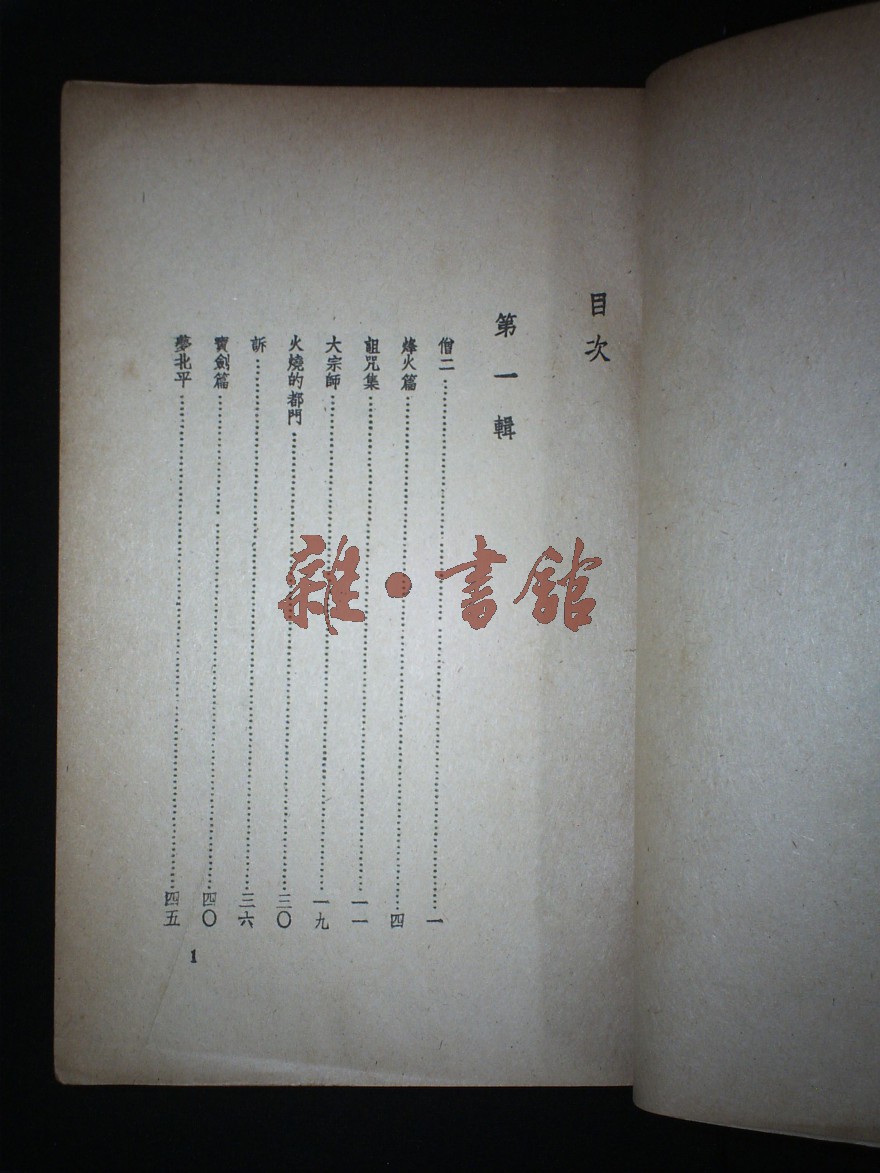 目次
第一輯
僧二……一
烽火篇……四
詛咒集……一一
大宗師……一九
火燒的都門……三〇
訴……三六
寶劍篇……四〇
夢北平……四五
1
雜·書館